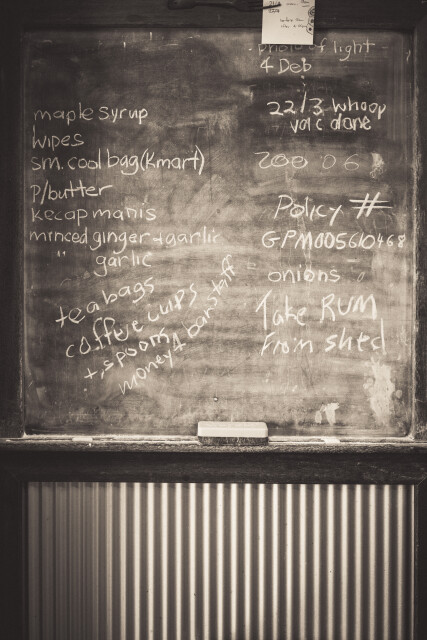 maple syrup
wipes
sm. cool bag (Kmart)
p/butter
kecap manis
minced ginger + garlic
" garlic
tea bags
coffee cups
+ spoons
money 4 bar staff
photo of light
4 Deb
22/3 whoop
vac dane
Policy #
GPM005610468
onions
Take RUM
From shed